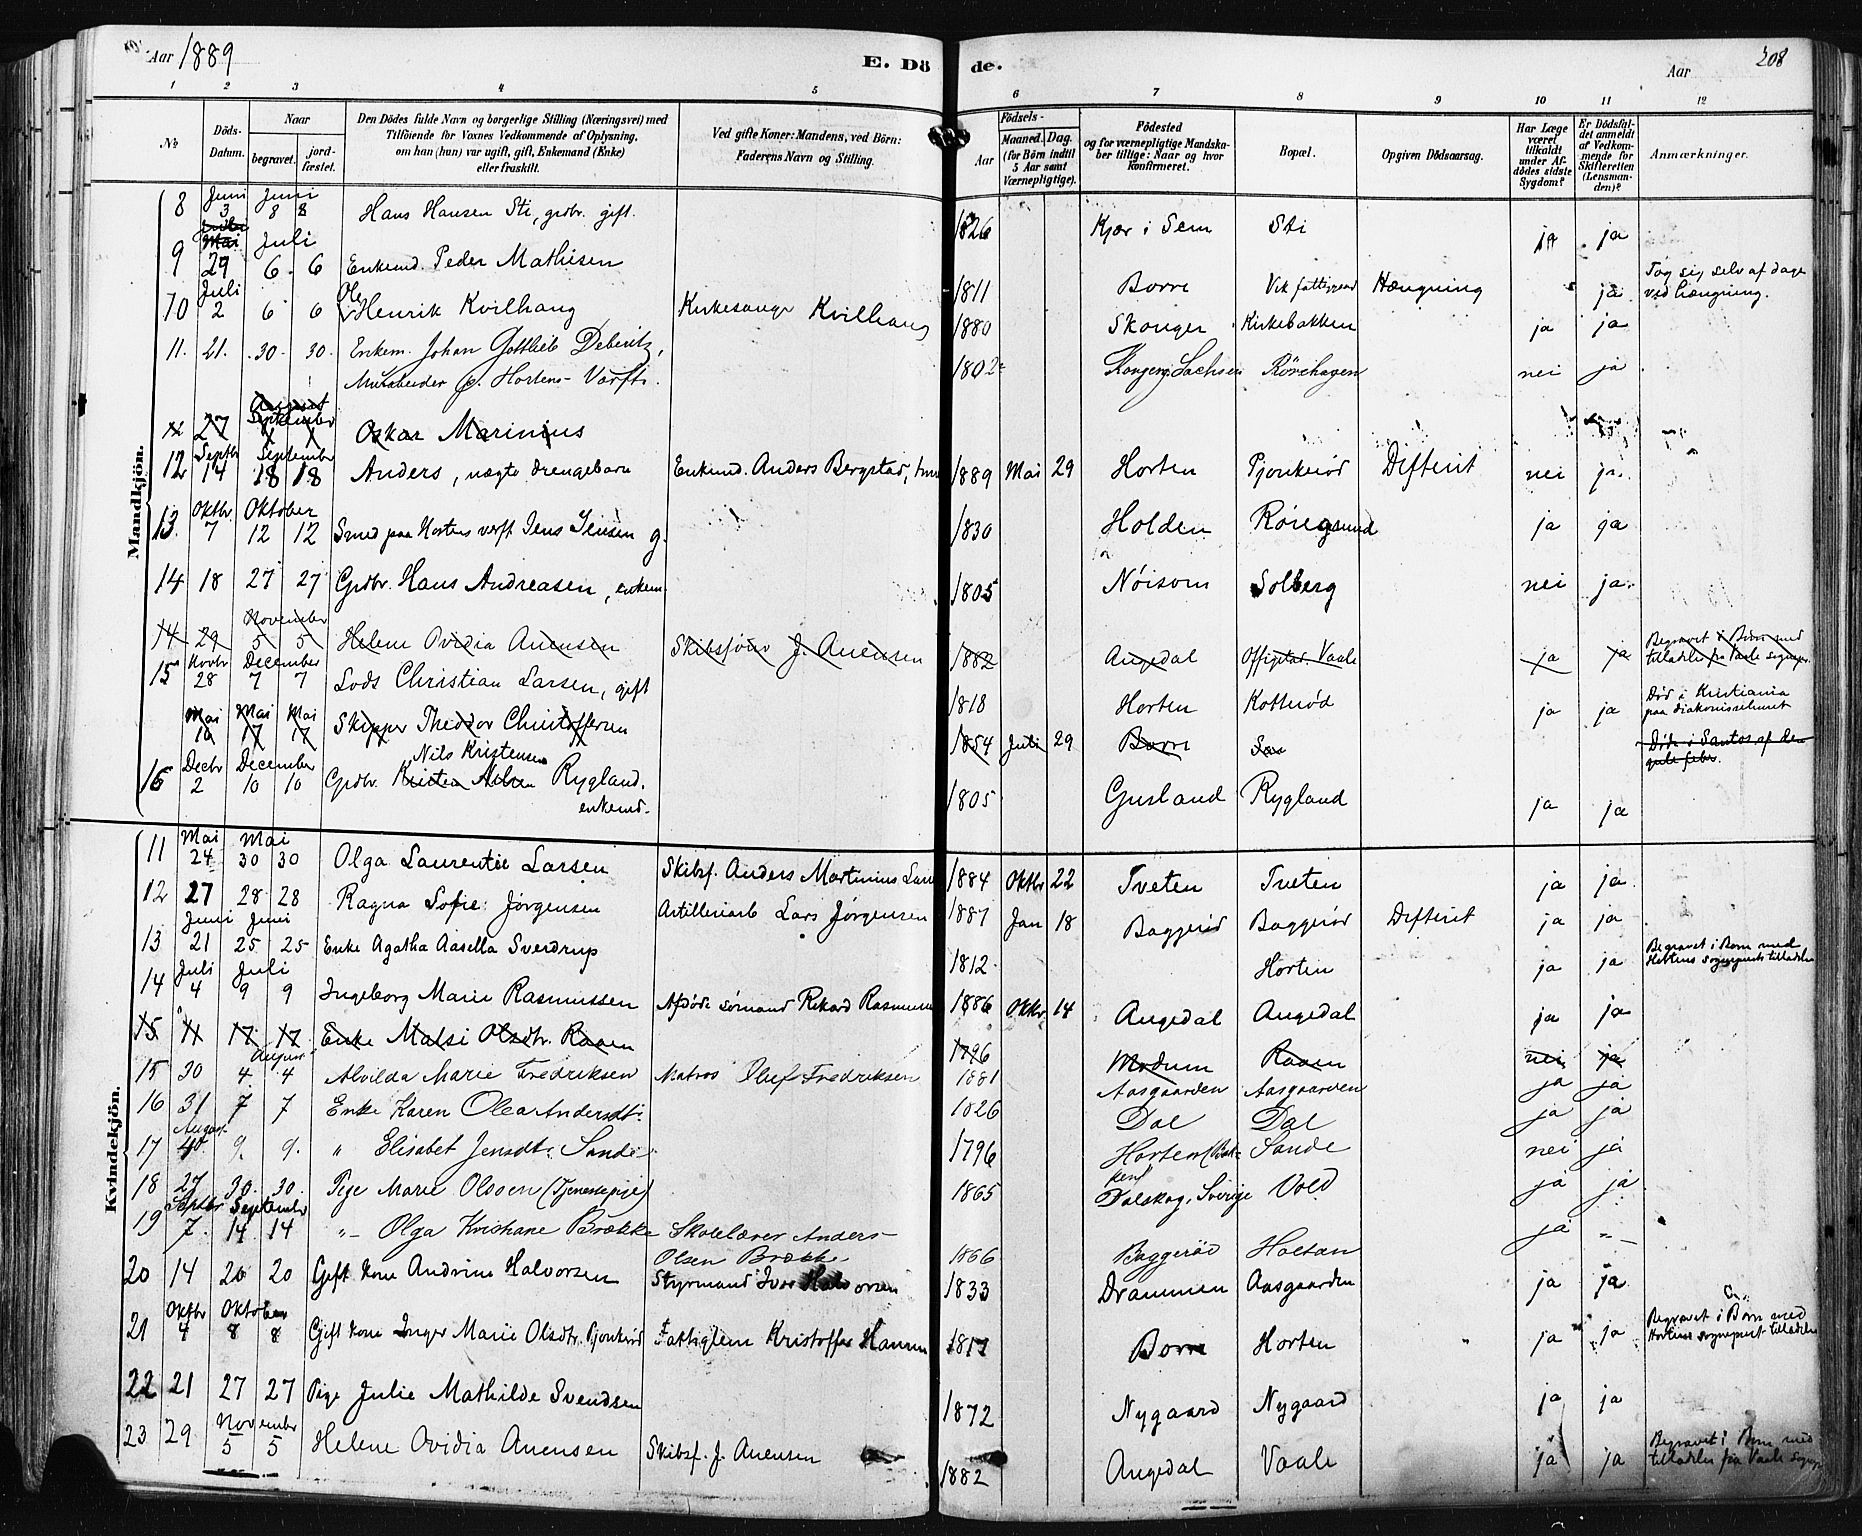 Aar 1889
E. Döde.
Aar
208
1 2 3 4 5 6 7 8 9 10 11 12
No
Döds-Datum.
Naar
begravet.
jordfæstet.
Den Dödes fulde Navn og borgerlige Stilling (Næringsvei) med
Tilföiende for Voxnes Vedkommende af Oplysning,
om han (hun) var ugift, gift, Enkemand (Enke)
eller fraskilt.
Ved gifte Koner: Mandens, ved Börn:
Faderens Navn og Stilling.
Födsels-
Aar
Maaned. Dag.
(for Börn indtil
5 Aar samt
Værnepligtige).
Födested
og for værnepligtige Mandskaber tillige: Naar og hvor
Konfirmeret.
Bopæl.
Opgiven Dödsaarsag.
Har Læge været tilkaldt under Afdödes sidste Sygdom?
Er Dödsfaldet anmeldt af Vedkommende for Skifteretten (Lensmanden)?
Anmærkninger.
Mandkjön.
8 Juni 3 Juni 8 8 Hans Hansen Sti, grdbr. gift. 1826 Kjær i Sem Sti ja ja
9 Juli Mai 29 Juli 6 6 Enkemd. Peder Mathisen 1811 Borre Vik Hængning ja Tog sig selv af dage ved hængning.
10 Juli 2 6 6 Ole Henrik Kvilhaug Kirkesanger Kvilhaug 1880 Skouger Kirkebakken ja ja
11. 21. 30. 30. Enkem. Johan Gottlieb Deberitz, 1802 Kongerig. Sachsen Rörehagen nei ja
p. Hortens-Værft.
27 August September Oskar Marinius
12 Septbr 14 September 18 18 Anders, uægte drengebarn Enkemd. Anders Bergstad, 1889 Mai 29 Horten Pjonkerød Difterit nei ja
13. Oktbr. 7 Oktober 12 12 Smed paa Hortens verft Jens Jensen g. 1830 Holden ja ja
14 18 27 27 Grdbr. Hans Andreasen, enkem. 1805 Nöisom Solberg nei ja
14 29 November 5 5 Helene Ovidia Anensen Skibsförer J. Anensen 1882 Augedal Vaale ja ja Begravet i Borre med tilladelse fra Vaale sognepr.
15 Novbr 28 December 7 7 Lods Christian Larsen, gift 1818 Horten Kotterød ja ja Död i Kristiania paa diakonissehuset
Mai 10 Mai 17 Mai 17 Skipper Theodor Christoffersen 1854 Juli 29 Borre Döde i Santos af den gule feber.
16 Decbr 2 December 10 10 Grdbr. Nils Kristensen Rygland. enkemd. 1805 Gusland Rygland ja ja
Kvindekjön.
11 Mai 24 Mai 30 30 Olga Laurentie Larsen Skibsf. Anders Martinius 1884 Oktbr 22 Tveten Tveten ja ja
12 27 28 28 Ragna Sofie Jørgensen Artilleriarb Lars Jørgensen 1887 Jan 18 Baggerød Baggerød Difterit ja ja
13 Juni 21 Juni 25 25 Enke Agatha Aasella Sverdrup 1812 Horten ja ja Begravet i Borre med Hortens sogneprests tilladelse
14 Juli 4 Juli 9 9 Ingeborg Marie Rasmussen Afdöde sømand Rikard 1886 Oktbr. 14 Augedal Augedal ja ja
15 11 17 17 Enke Malsi Olsdtr. Raaen 1796 Modum Raaen nei ja
15 30 August 4 4 Alvilda Marie Fredriksen Matros Oluf Fredriksen 1881 Aasgaarden Aasgaarden ja ja
16 31 7 7 Enke Karen Olea Andersdtr. 1826 Dal Dal ja ja
17 August 9. 9. " Elisabet Jensdtr. Sande 1796 Horten (Bakken) Sande nei ja
18 27 30. 30. Pige Marie Olsoen (Tjenestepige) 1865 Dalskog, Sverige Vold ja ja
19 Septbr 7. September 14 14 " Olga Kristiane Brække Skolelærer Anders Olsen Brække 1866 Baggerød Holtan ja "
20 14 20 20 Gift kone Andrine Halvorsen Styrmand Ivar Halvorsen 1833 Drammen Aasgaarden ja ja
21 Oktbr 4 Oktober 8 8 Gift kone Inger Marie Olsdtr. Pjonkerød Fattiglem Kristoffer 1817 Borre Horten ja ja Begravet i Borre med Hortens sogneprest tilladelse
22 21 27 27 Pige Julie Mathilde Svendsen 1872 Nygaard Nygaard ja ja
23 29 November 5 5 Helene Ovidia Anensen Skibsf. J. Anensen 1882 Augedal Vaale ja ja Begravet i Borre med tilladelse fra Vaale